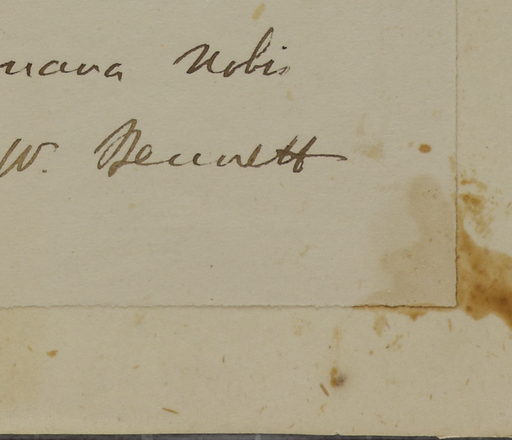 nana Nobis
W. Bennett